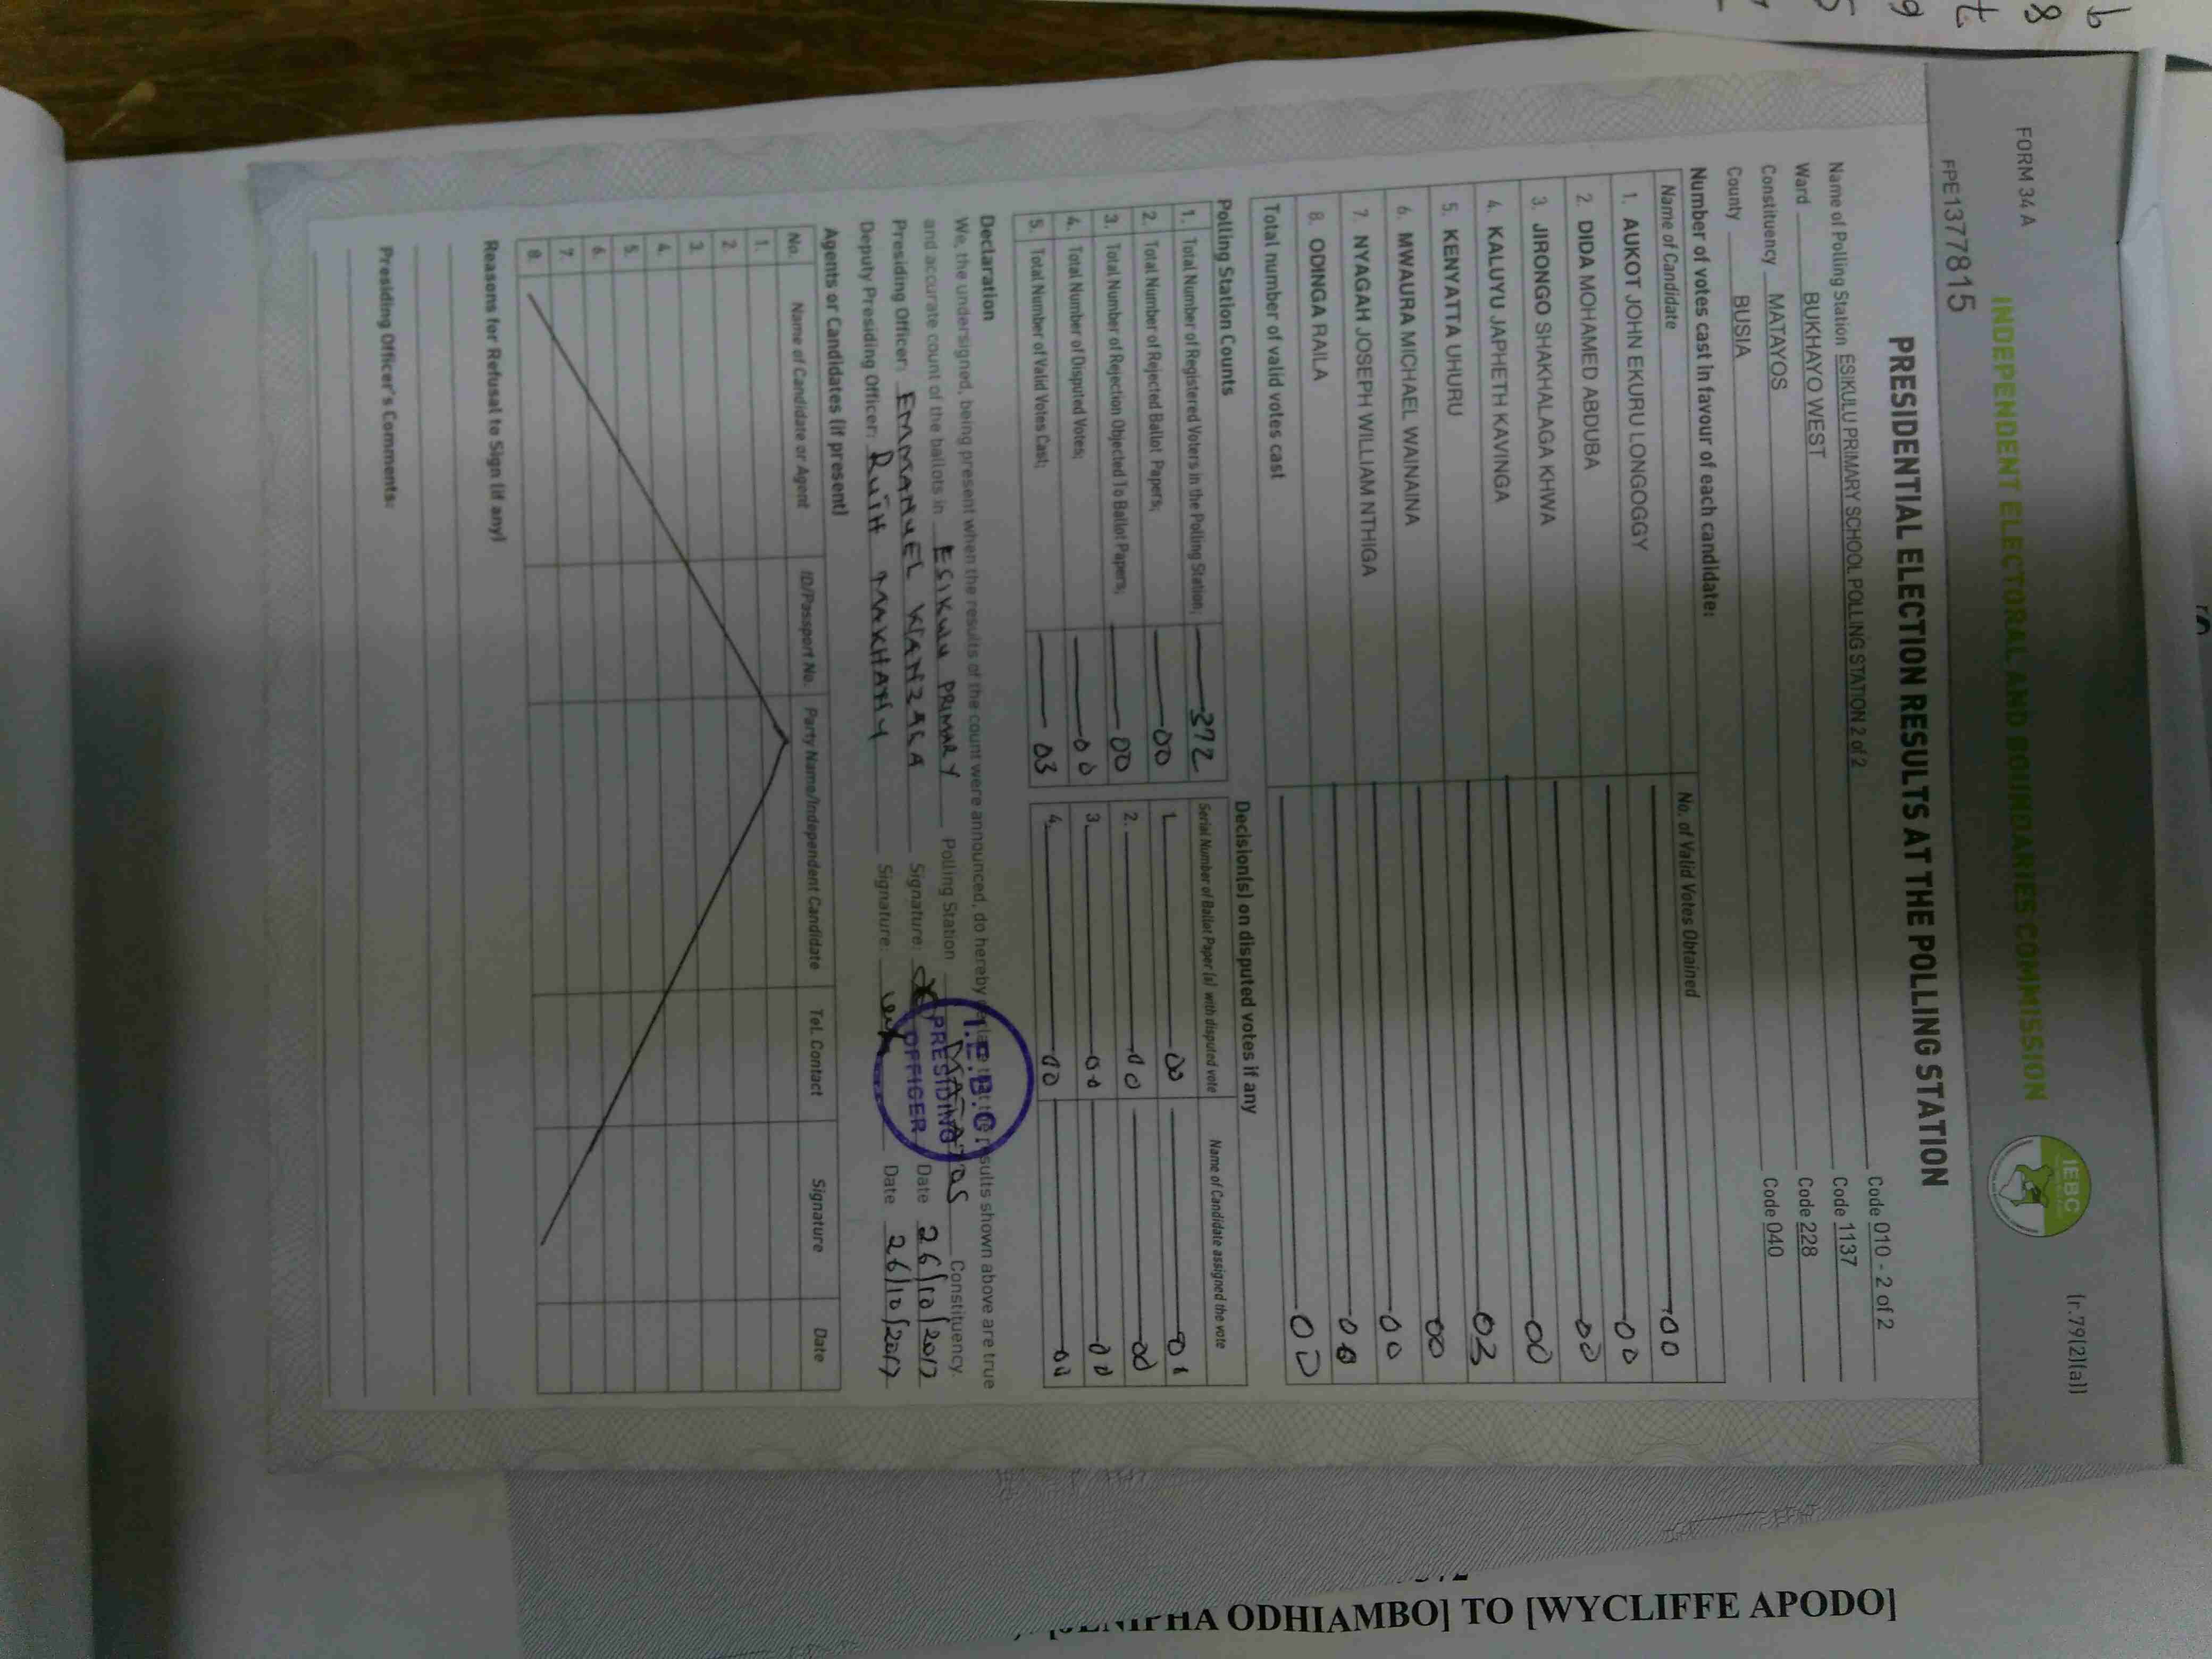 FORM 34 A
(r.79(2)(a))
INDEPENDENT ELECTORAL AND BOUNDARIES COMMISSION
IEBC
FPE1377815
PRESIDENTIAL ELECTION RESULTS AT THE POLLING STATION
Name of Polling Station ESIKULU PRIMARY SCHOOL POLLING STATION 2 of 2 Code 010 - 2 of 2
Ward BUKHAYO WEST Code 1137
Constituency MATAYOS Code 228
County BUSIA Code 040
Number of votes cast in favour of each candidate:
Name of Candidate No. of Valid Votes Obtained
1. AUKOT JOHN EKURU LONGOGGY 00
2. DIDA MOHAMED ABDUBA 00
3. JIRONGO SHAKHALAGA KHWA 00
4. KALUYU JAPHETH KAVINGA 00
5. KENYATTA UHURU 03
6. MWAURA MICHAEL WAINAINA 00
7. NYAGAH JOSEPH WILLIAM NTHIGA 00
8. ODINGA RAILA 00
Total number of valid votes cast 00
Polling Station Counts
1. Total Number of Registered Voters in the Polling Station; 372
2. Total Number of Rejected Ballot Papers; 00
3. Total Number of Rejection Objected To Ballot Papers; 00
4. Total Number of Disputed Votes; 00
5. Total Number of Valid Votes Cast; 03
Decision(s) on disputed votes if any
Serial Number of Ballot Paper (s) with disputed vote Name of Candidate assigned the vote
1. 00 00
2. 00 00
3. 00 00
4. 00 00
Declaration
We, the undersigned, being present when the results of the count were announced, do hereby declare that the results shown above are true
and accurate count of the ballots in ESIKULU PRIMARY Polling Station MATAYOS Constituency.
Presiding Officer: EMMANUEL WANZALA Signature: Date 26/10/2017
Deputy Presiding Officer: RUTH MAKHANU Signature: Date 26/10/2017
I.E.B.C.
PRESIDING
OFFICER
Agents or Candidates (if present)
No. Name of Candidate or Agent ID/Passport No. Party Name/Independent Candidate Tel. Contact Signature Date
1.
2.
3.
4.
5.
6.
7.
8.
Reasons for Refusal to Sign (if any)
Presiding Officer's Comments:
ODHIAMBO] TO [WYCLIFFE APODO]